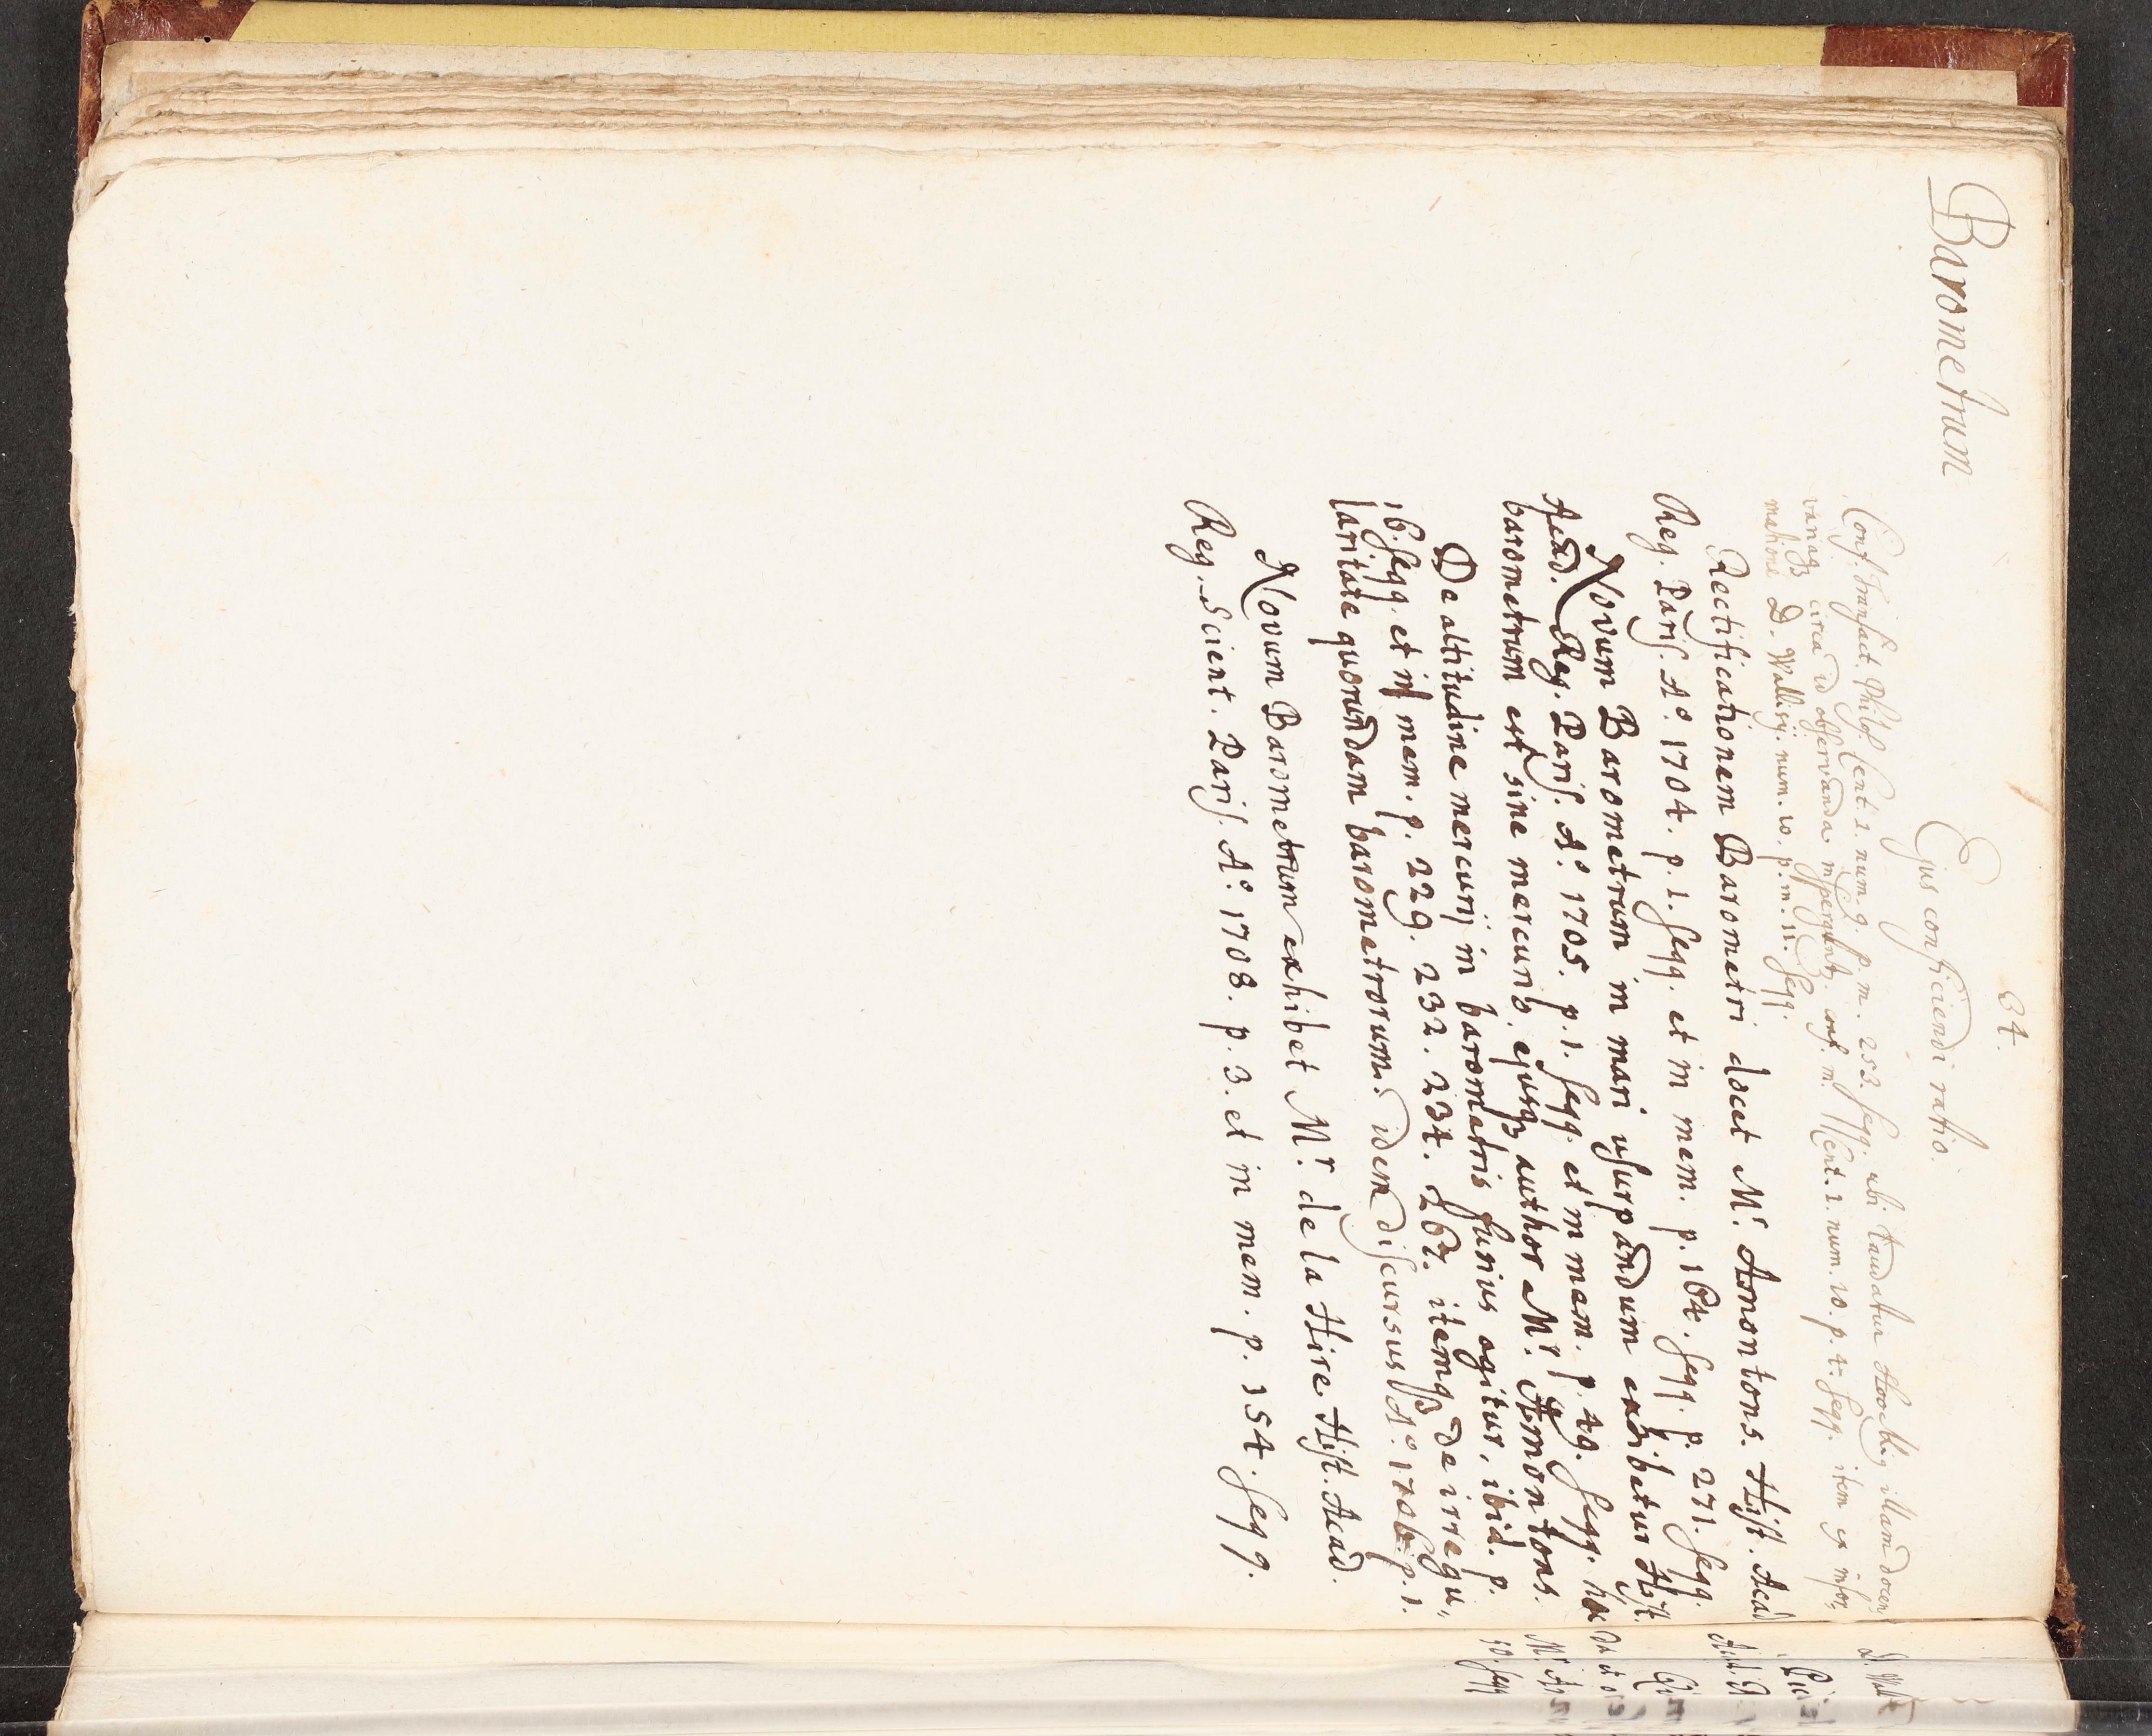 34.
Barometrum
Ejus conficiendi ratio.
Conf. Transact. Philos. Cent. 1. num. 9. p. m. 253. seqq. ubi laudatur Hookig illam docens
variaqз circa id observanda m pergunt. conf. m. Cent. 1. num. 10. p. 4. seqq. item ex infor-
matione D. Wallisij num. 10. p. m. 11. seqq.
Rectificationem Barometri docet Mr. Amontons. Hist. Acad
Reg. Paris. Ao. 1704. p. 1. seqq. et in mem. p. 164. seqq. p. 271. seqq.
Novum Barometrum in mari usurpandum exhibetur Hist.
Acad. Reg. Paris. Ao. 1705. p. 1. seqq. et in mem. p. 49. seqq. hoc
barometrum est sine mercurio. ejusqз author Mr. Amontons.
De altitudine mercurij in barometris fusius agitur, ibid. p.
16. seqq. et in mem. p. 229. 232. 234. 267. itemqз de irregu-
laritate quorundam barometrorum. idem discursus Ao. 1706. p. 1.
Novum Barometrum exhibet Mr. de la Hire Hist. Acad.
Reg. Scient. Paris. Ao. 1708. p. 3. et in mem. p. 154. seqq.